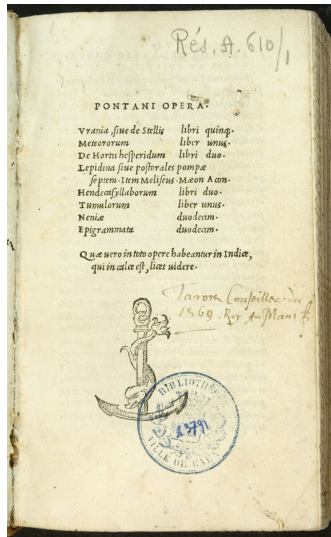 Rés. A. 610/1
PONTANI OPERA.
Vrania, siue de Stellis libri quinq;.
Meteororum liber unus.
De Hortis hesperidum libri duo.
Lepidina siue postorales pompæ
septem. Item Meliseus. Mæon Acon.
Hendecasyllaborum libri duo.
Tumulorum liber unus.
Neniæ duodecim.
Epigrammata duodecim.
Quæ uero in toto opere habeantur in Indice,
qui in calce est, licet uidere.
Conseiller du
1569. Roy au Mans
BIBLIOTHÈ
VILLE DE CAEN